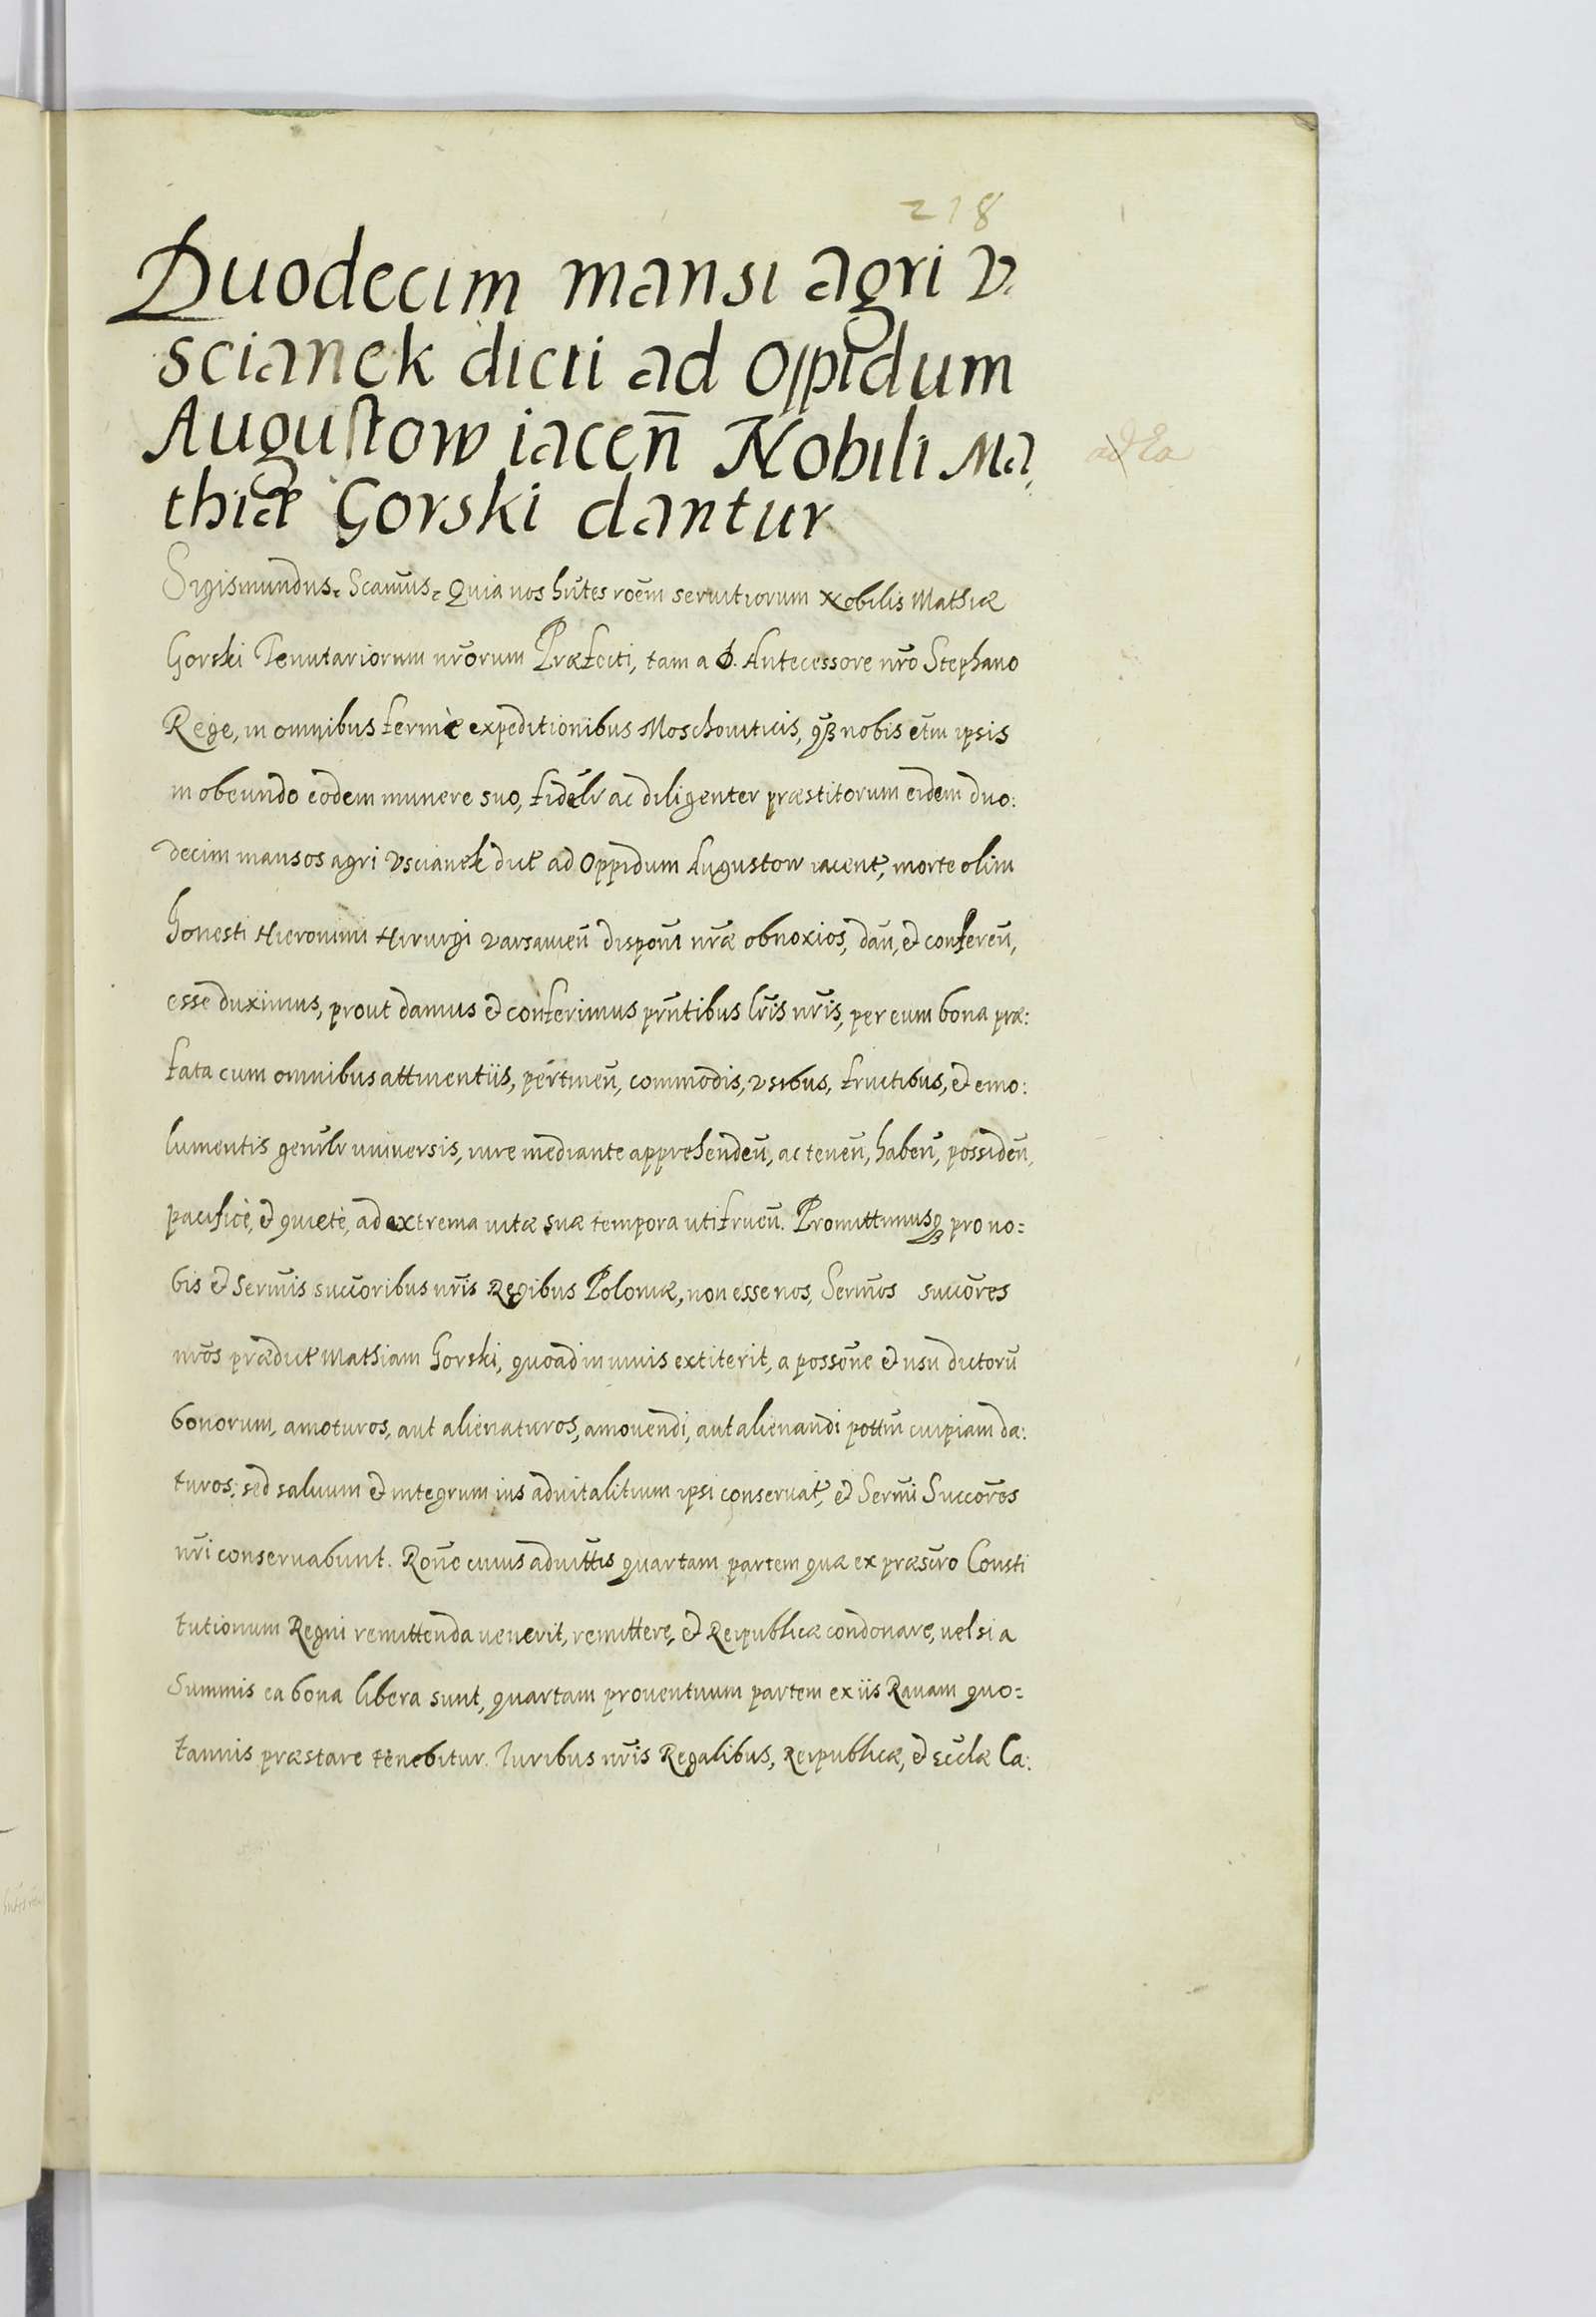 218
Duodecim mansi agri v.
scianek dicti ad Oppidum
Augustow iaceñ Nobili Ma,
thiæ Gorski dantur
Sigismundus. Scamus. Quia nos hñtes rõem seruitiorum Nobilis Mathiæ
Gorski Tenutariorum nrõrum Præfecti, tam a D. Antecessore nrõ Stephano
Rege, in omnibus fermè expeditionibus Moschouiticis, qß nobis etm̃ ipsis
in obeundo eodem munere suo, fidelr̃ ac diligenter præstitorum eidem duo:
decim mansos agri vscianek dict̃ ad Oppidum Augustow iacent̃, morte olim
honesti Hieronimi Hirurgi varsauieñ disponĩ nrãe obnoxios, dañ, et confereñ,
esse duximus, prout damus et conferimus prñtibus lrĩs nrĩs, per eum bona præ:
fata cum omnibus attinentiis, pertineñ, commodis, vsibus, fructibus, et emo:
lumentis genrãlr vniuersis, iure mediante apprehendeñ, ac teneñ, habeñ, possideñ,
pacificè, et quietè, ad extrema vitæ suæ tempora utifrueñ. Promittimusq pro no:
bis et Sermĩs succõribus nrĩs Regibus Poloniæ, non esse nos, Sermõs succõres
nrõs prædict̃ Mathiam Gorski, quoad in uiuis extiterit, a possõne et usu dictorũ
bonorum, amoturos, aut alienaturos, amouendi, aut alienandi pottm̃ cuipiam da:
turos; sed saluum et integrum ius aduitalitium ipsi conseruat̃, et Sermĩ Succõres
nrĩ conseruabunt. Roñe cuius aduittĩs quartam partem quæ ex præscrõ Consti
tutionum Regni remittenda uenerit, remittere, et Reipublicæ condonare, uel si a
Summis ea bona libera sunt, quartam prouentuum partem ex iis Rauam quo:
tannis præstare tenebitur. Iuribus nrĩs Regalibus, Reipublicæ, et Eccl̃æ Ca: